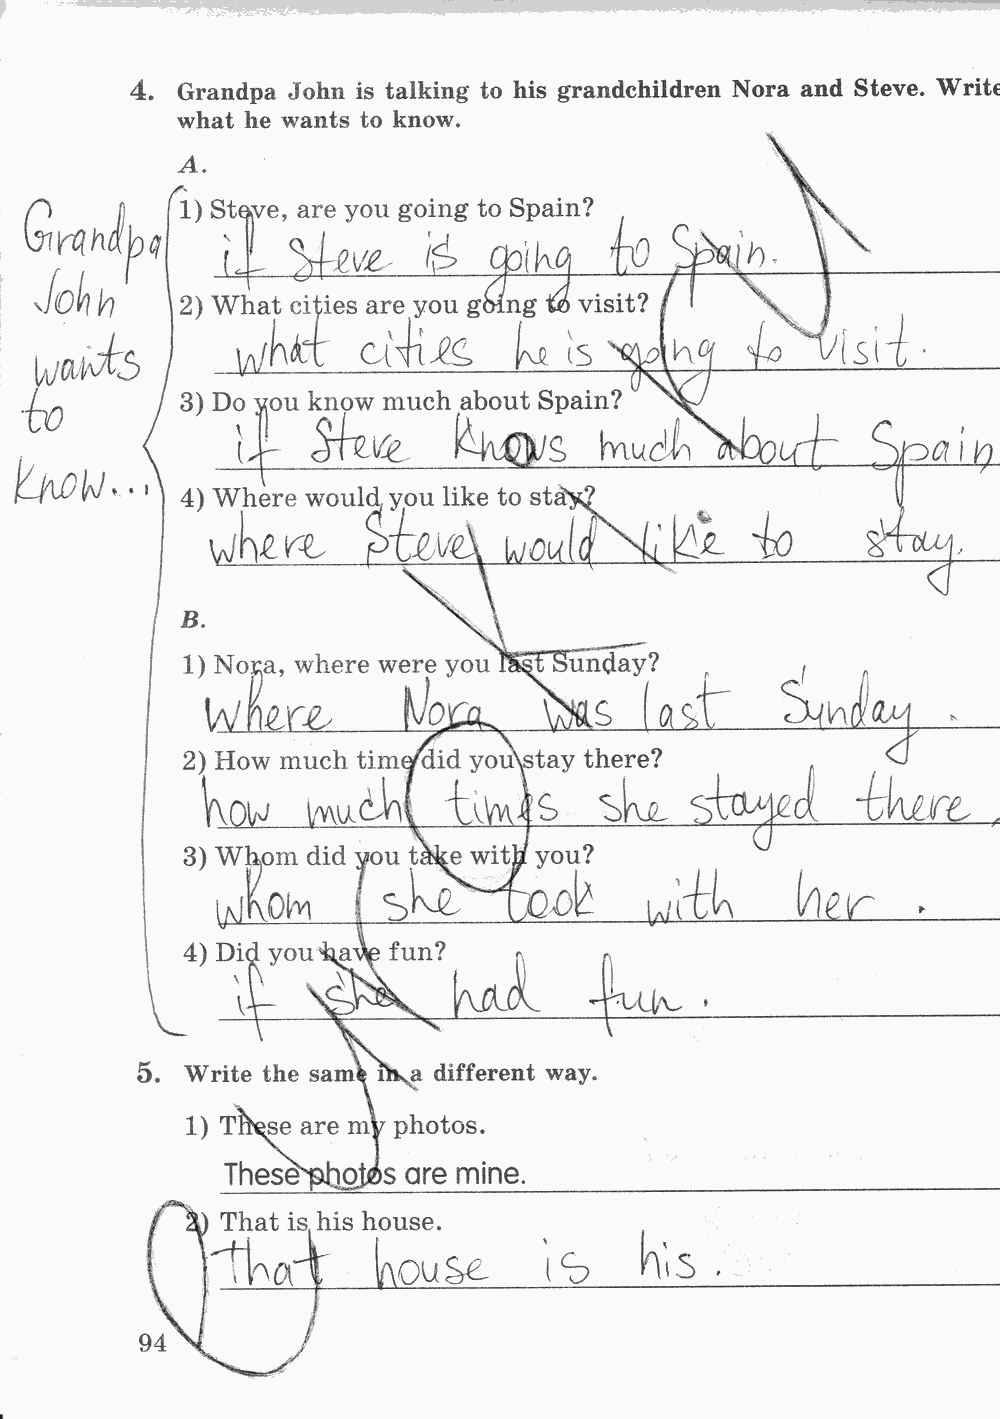 4. Grandpa John is talking to his grandchildren Nora and Steve. Write
what he wants to know.
A.
Grandpa
John
wants
to
know...
1) Steve, are you going to Spain?
if Steve is going to Spain.
2) What cities are you going to visit?
what cities he is going to visit.
3) Do you know much about Spain?
if Steve knows much about Spain
4) Where would you like to stay?
where Steve would like to stay.
B.
1) Nora, where were you last Sunday?
where Nora was last Sunday.
2) How much time did you stay there?
how much times she stayed there.
3) Whom did you take with you?
whom she took with her.
4) Did you have fun?
if she had fun.
5. Write the same in a different way.
1) These are my photos.
These photos are mine.
2) That is his house.
That house is his.
94